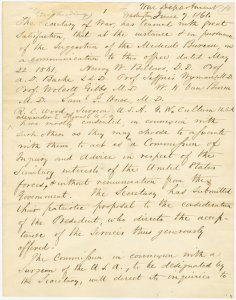 War Department
Washington June 9, 1861.
The Secretary of War has learned with great
Satisfaction, that at the instance and in pursuance
of the Suggestion of the Medical Bureau, in
a communication to this office dated May
22 1861. Henry W. Bellows, D.D. Prof.
A. D. Bache L.L.D. Prof Jeffries Wyman M.D.
Prof. Wolcott Gibbs M.D. W. H. Van Buren
M.D. Samuel G. Howe, M.D.
R. C. Wood, Surgeon U.S.A. G. W. Cullum U.S.A.
Alexander E. Shiras U.S.A.
have mostly consented, in connexion with
such others as they may choose to associate
with them to act as a Commission of
Inquiry and Advice in respect of the
Sanitary interests of the United States
forces, & without remuneration from the
Government. The Secretary has Submitted
their patriotic proposal to the consideration
of the President, who directs the accep-
tance of the Services thus generously
offered.
The Commission in connexion with a
Surgeon of the U.S.A., to be designated by
the Secretary, will direct its inquiries to